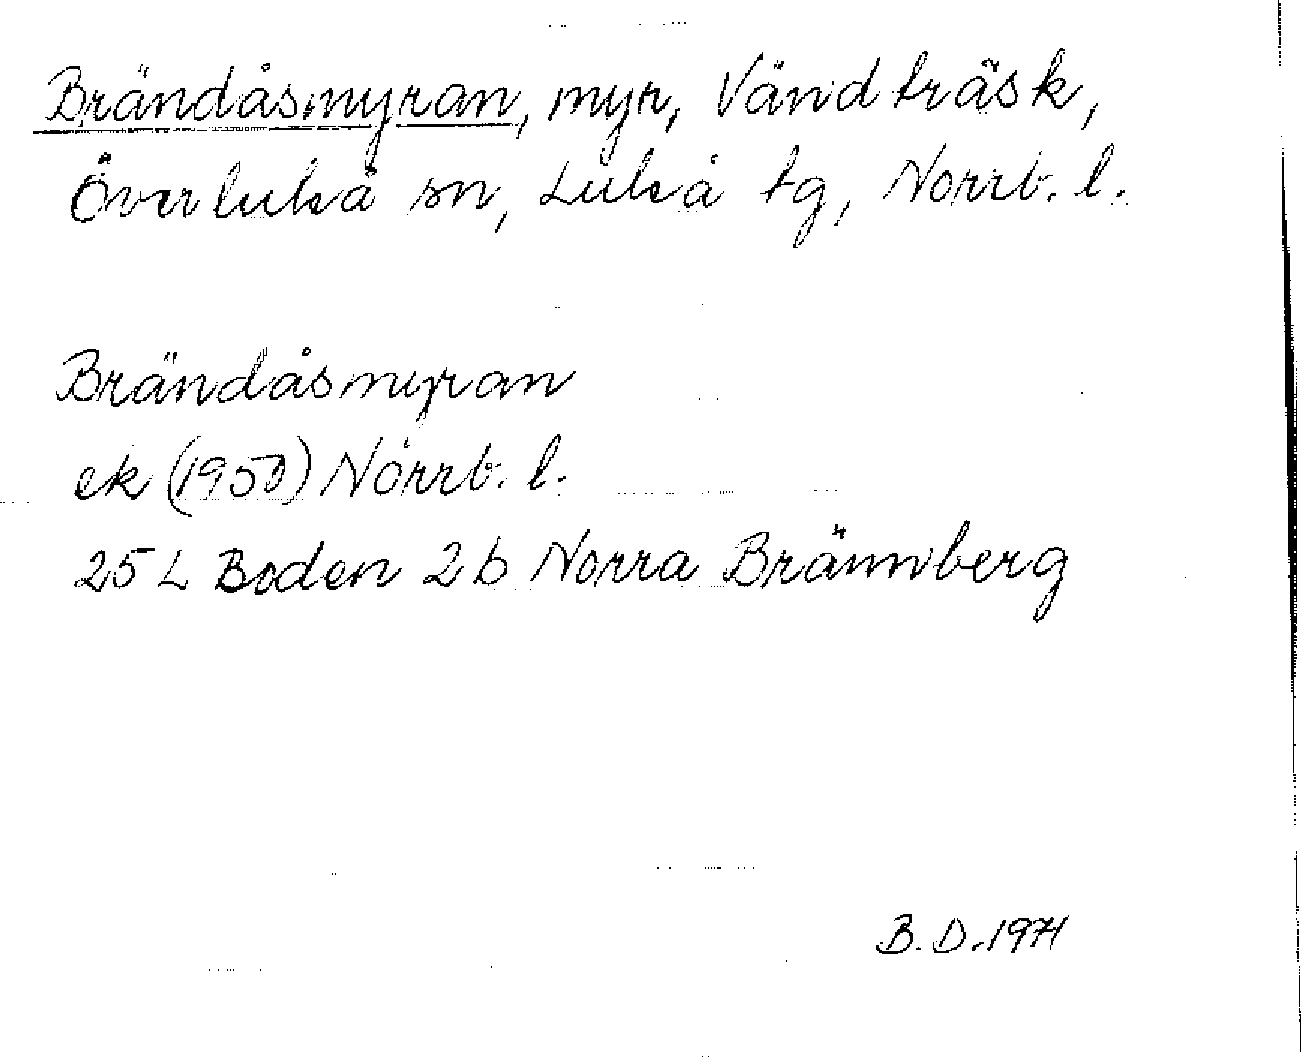 Brändåsmyran, myr, Vändträsk,
Överluleå sn, Luleå tg, Norrb. l.
Brändåsmyran
ek (1950) Norrb. l.
25 L Boden 2b Norra Brännberg
B.D.1971